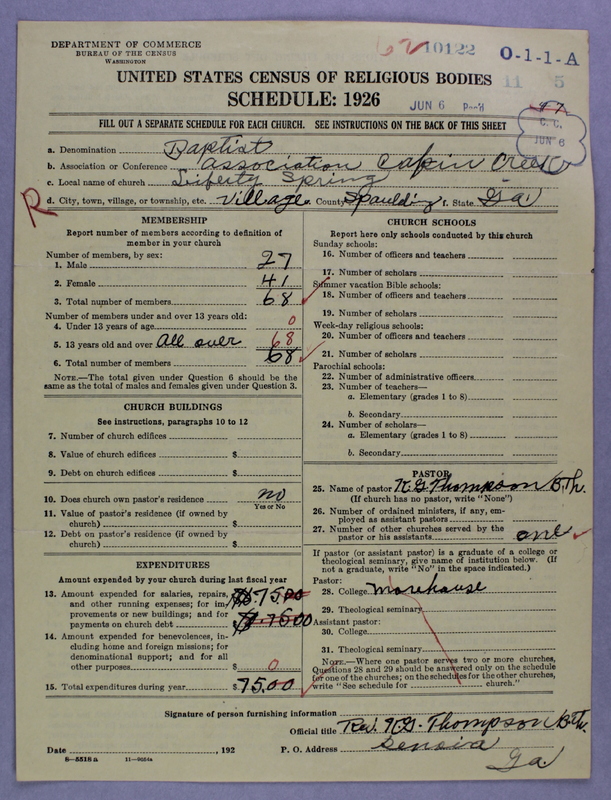 DEPARTMENT OF COMMERCE
BUREAU OF THE CENSUS
WASHINGTON
62 10122 O-1-1-A
11 5
UNITED STATES CENSUS OF RELIGIOUS BODIES
SCHEDULE: 1926
JUN 6
47
C. C.
JUN 6
FILL OUT A SEPARATE SCHEDULE FOR EACH CHURCH. SEE INSTRUCTIONS ON THE BACK OF THIS SHEET
a. Denomination Baptist
b. Association or Conference Association Cabin Creek
c. Local name of church Liberty Spring
R d. City, town, village, or township, etc. Village e. County Spaulding f. State Ga.
MEMBERSHIP
Report number of members according to definition of
member in your church
Number of members, by sex:
1. Male 27
2. Female 41
3. Total number of members 68
Number of members under and over 13 years old:
4. Under 13 years of age 0
5. 13 years old and over All over 68
6. Total number of members 68
NOTE.—The total given under Question 6 should be the
same as the total of males and females given under Question 3.
CHURCH BUILDINGS
See instructions, paragraphs 10 to 12
7. Number of church edifices
8. Value of church edifices $
9. Debt on church edifices $
10. Does church own pastor's residence no
Yes or No
11. Value of pastor's residence (if owned by
church) $
12. Debt on pastor's residence (if owned by
church) $
EXPENDITURES
Amount expended by your church during last fiscal year
13. Amount expended for salaries, repairs, $75.00
and other running expenses; for im-
provements or new buildings; and for
payments on church debt $75.00
14. Amount expended for benevolences, in-
cluding home and foreign missions; for
denominational support; and for all
other purposes $ 0
15. Total expenditures during year $75.00
CHURCH SCHOOLS
Report here only schools conducted by this church
Sunday schools:
16. Number of officers and teachers
17. Number of scholars
Summer vacation Bible schools:
18. Number of officers and teachers
19. Number of scholars
Week-day religious schools:
20. Number of officers and teachers
21. Number of scholars
Parochial schools:
22. Number of administrative officers
23. Number of teachers—
a. Elementary (grades 1 to 8)
b. Secondary
24. Number of scholars—
a. Elementary (grades 1 to 8)
b. Secondary
PASTOR
25. Name of pastor Thompson B.Th.
(If church has no pastor, write "None")
26. Number of ordained ministers, if any, em-
ployed as assistant pastors
27. Number of other churches served by the
pastor or his assistants one
If pastor (or assistant pastor) is a graduate of a college or
theological seminary, give name of institution below. (If
not a graduate, write "No" in the space indicated.)
Pastor:
28. College Morehause
29. Theological seminary
Assistant pastor:
30. College
31. Theological seminary
NOTE.—Where one pastor serves two or more churches,
Questions 28 and 29 should be answered only on the schedule
for one of the churches; on the schedules for the other churches,
write "See schedule for church."
Signature of person furnishing information
Official title Rev. Thompson B.Th.
Date , 192 P. O. Address Senoia
Ga
8—5518 a 11—9054a